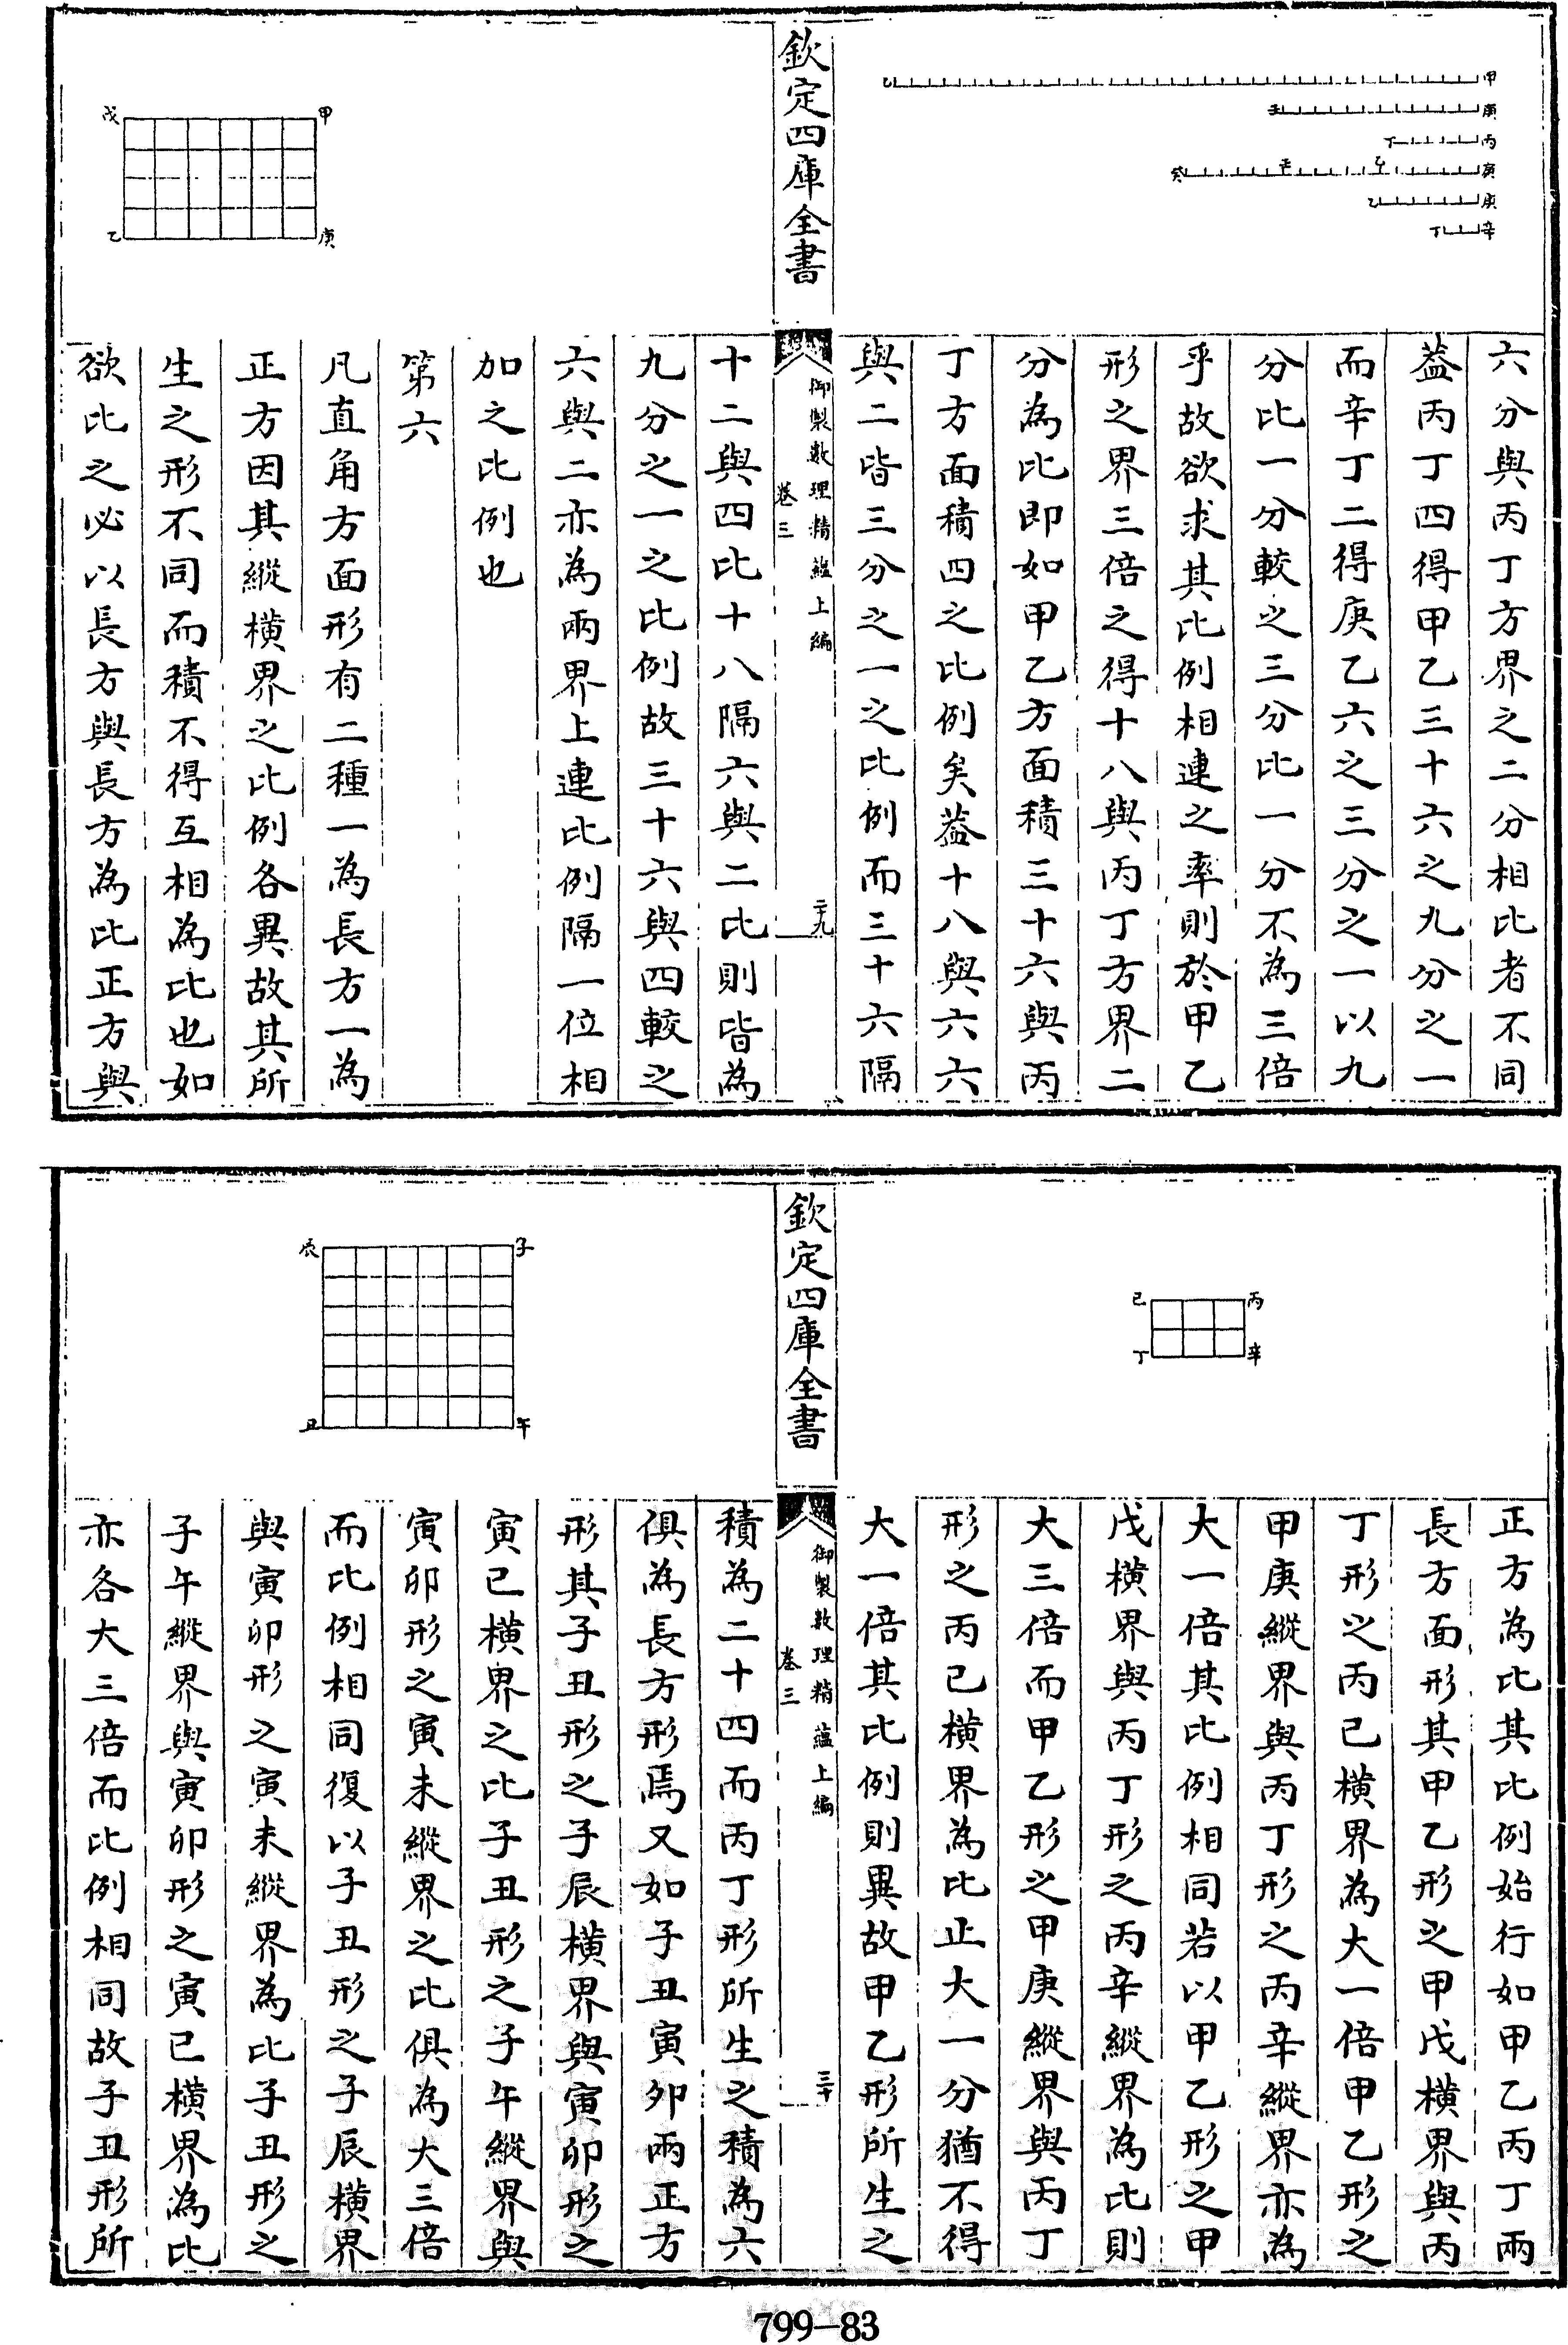 甲
乙
庚
壬
丙
丁
庚
乙
壬
癸
庚
乙
辛
丁
六分與丙丁方界之二分相比者不同
葢丙丁四得甲乙三十六之九分之一
而辛丁二得庚乙六之三分之一以九
分比一分較之三分比一分不為三倍
乎故欲求其比例相連之率則於甲乙
形之界三倍之得十八與丙丁方界二
分為比即如甲乙方面積三十六與丙
丁方面積四之比例矣葢十八與六六
與二皆三分之一之比例而三十六隔
欽定四庫全書
御製數理精蘊上編
卷三
二十九
甲
戊
庚
乙
十二與四比十八隔六與二比則皆為
九分之一之比例故三十六與四較之
六與二亦為兩界上連比例隔一位相
加之比例也
第六
凡直角方面形有二種一為長方一為
正方因其縱橫界之比例各異故其所
生之形不同而積不得互相為比也如
欲比之必以長方與長方為比正方與
丙
己
辛
丁
正方為比其比例始行如甲乙丙丁兩
長方面形其甲乙形之甲戊橫界與丙
丁形之丙己橫界為大一倍甲乙形之
甲庚縱界與丙丁形之丙辛縱界亦為
大一倍其比例相同若以甲乙形之甲
戊橫界與丙丁形之丙辛縱界為比則
大三倍而甲乙形之甲庚縱界與丙丁
形之丙己橫界為比止大一分猶不得
大一倍其比例則異故甲乙形所生之
欽定四庫全書
御製數理精蘊上編
卷三
三十
子
辰
午
丑
積為二十四而丙丁形所生之積為六
俱為長方形焉又如子丑寅卯兩正方
形其子丑形之子辰橫界與寅卯形之
寅巳橫界之比子丑形之子午縱界與
寅卯形之寅未縱界之比俱為大三倍
而比例相同復以子丑形之子辰橫界
與寅卯形之寅未縱界為比子丑形之
子午縱界與寅卯形之寅巳橫界為比
亦各大三倍而比例相同故子丑形所
799-83